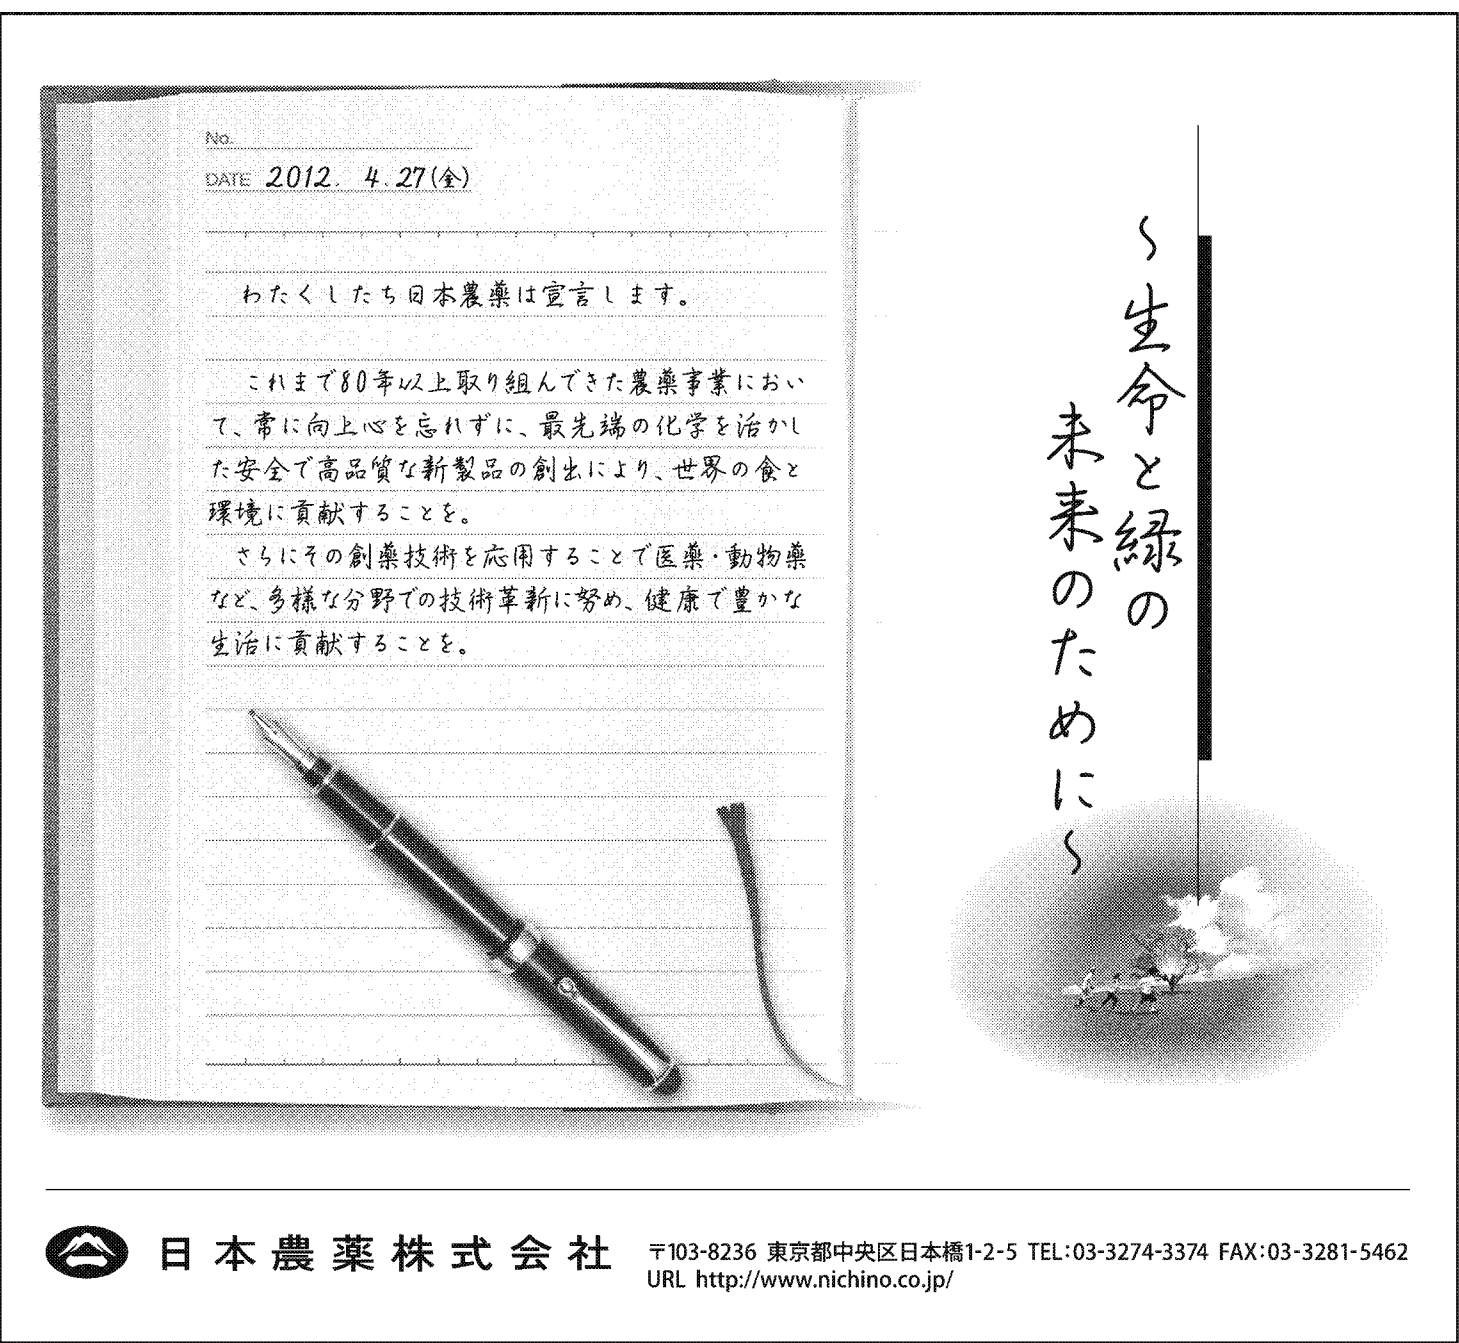 No.
DATE 2012. 4.27(金)
わたくしたち日本農薬は宣言します。
これまで80年以上取り組んできた農薬事業におい
て、常に向上心を忘れずに、最先端の化学を活かし
た安全で高品質な新製品の創出により、世界の食と
環境に貢献することを。
さらにその創薬技術を応用することで医薬・動物薬
など、多様な分野での技術革新に努め、健康で豊かな
生活に貢献することを。
〜生命と緑の
未来のために〜
日本農薬株式会社
〒103-8236 東京都中央区日本橋1-2-5 TEL:03-3274-3374 FAX:03-3281-5462
URL http://www.nichino.co.jp/